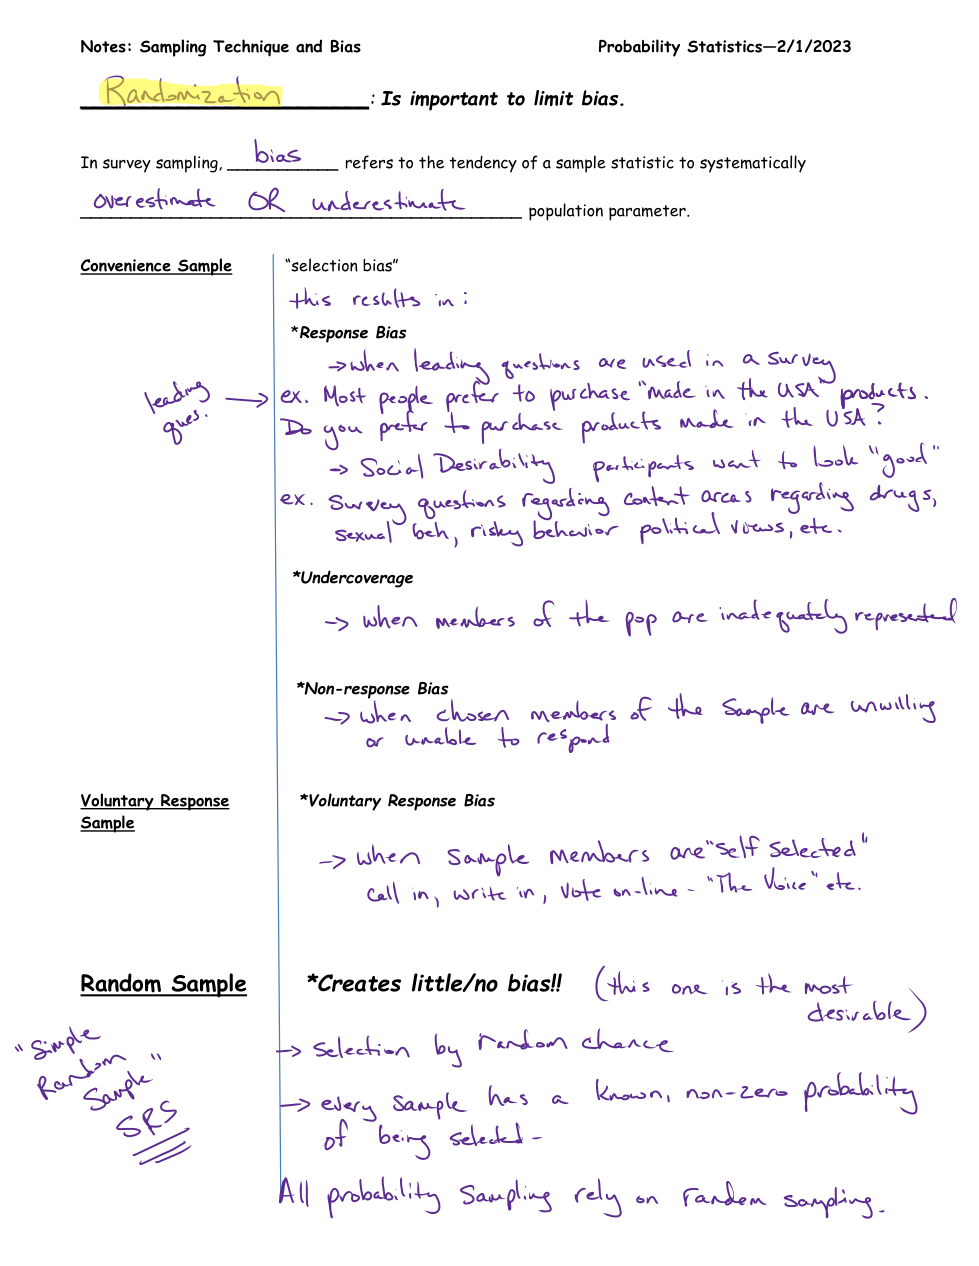 Notes: Sampling Technique and Bias Probability Statistics—2/1/2023
Randomization : Is important to limit bias.
In survey sampling, bias refers to the tendency of a sample statistic to systematically
overestimate OR underestimate population parameter.
Convenience Sample "selection bias"
this results in:
*Response Bias
→ when leading questions are used in a survey
leading ques. → ex. Most people prefer to purchase "made in the USA" products.
Do you prefer to purchase products made in the USA?
→ Social Desirability participants want to look "good"
ex. Survey questions regarding content areas regarding drugs,
sexual beh, risky behavior political views, etc.
*Undercoverage
→ when members of the pop are inadequately represented
*Non-response Bias
→ when chosen members of the sample are unwilling
or unable to respond
Voluntary Response *Voluntary Response Bias
Sample
→ when sample members are "self selected"
call in, write in, vote on-line - "The Voice" etc.
Random Sample *Creates little/no bias!! (this one is the most
desirable)
"Simple
Random
Sample"
SRS
→ selection by random chance
→ every sample has a known, non-zero probability
of being selected -
All probability sampling rely on random sampling.